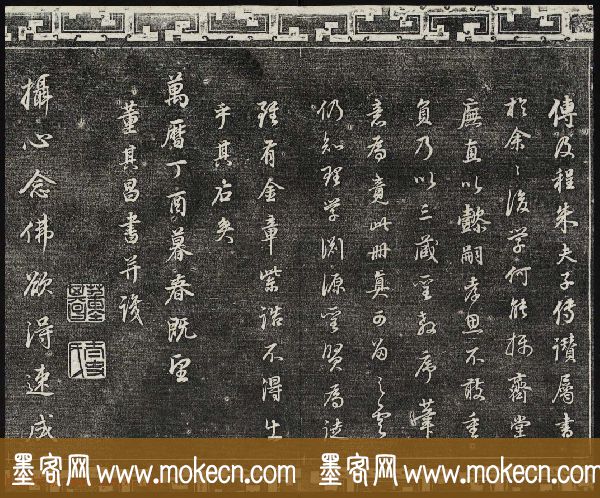 傳及程朱夫子傳讚屬書
於余余後學何能揚齋堂
廡直以懿嗣孝思不敢重
負乃以三藏聖教序筆
意為竟此冊真可為
仍知理學淵源聖賢為徒
雖有金章紫誥不得生
乎其右矣
萬曆丁酉暮春既望
董其昌書并識
攝心念佛欲得速成
墨客网 www.mokecn.com 墨客网 www.mokecn.com